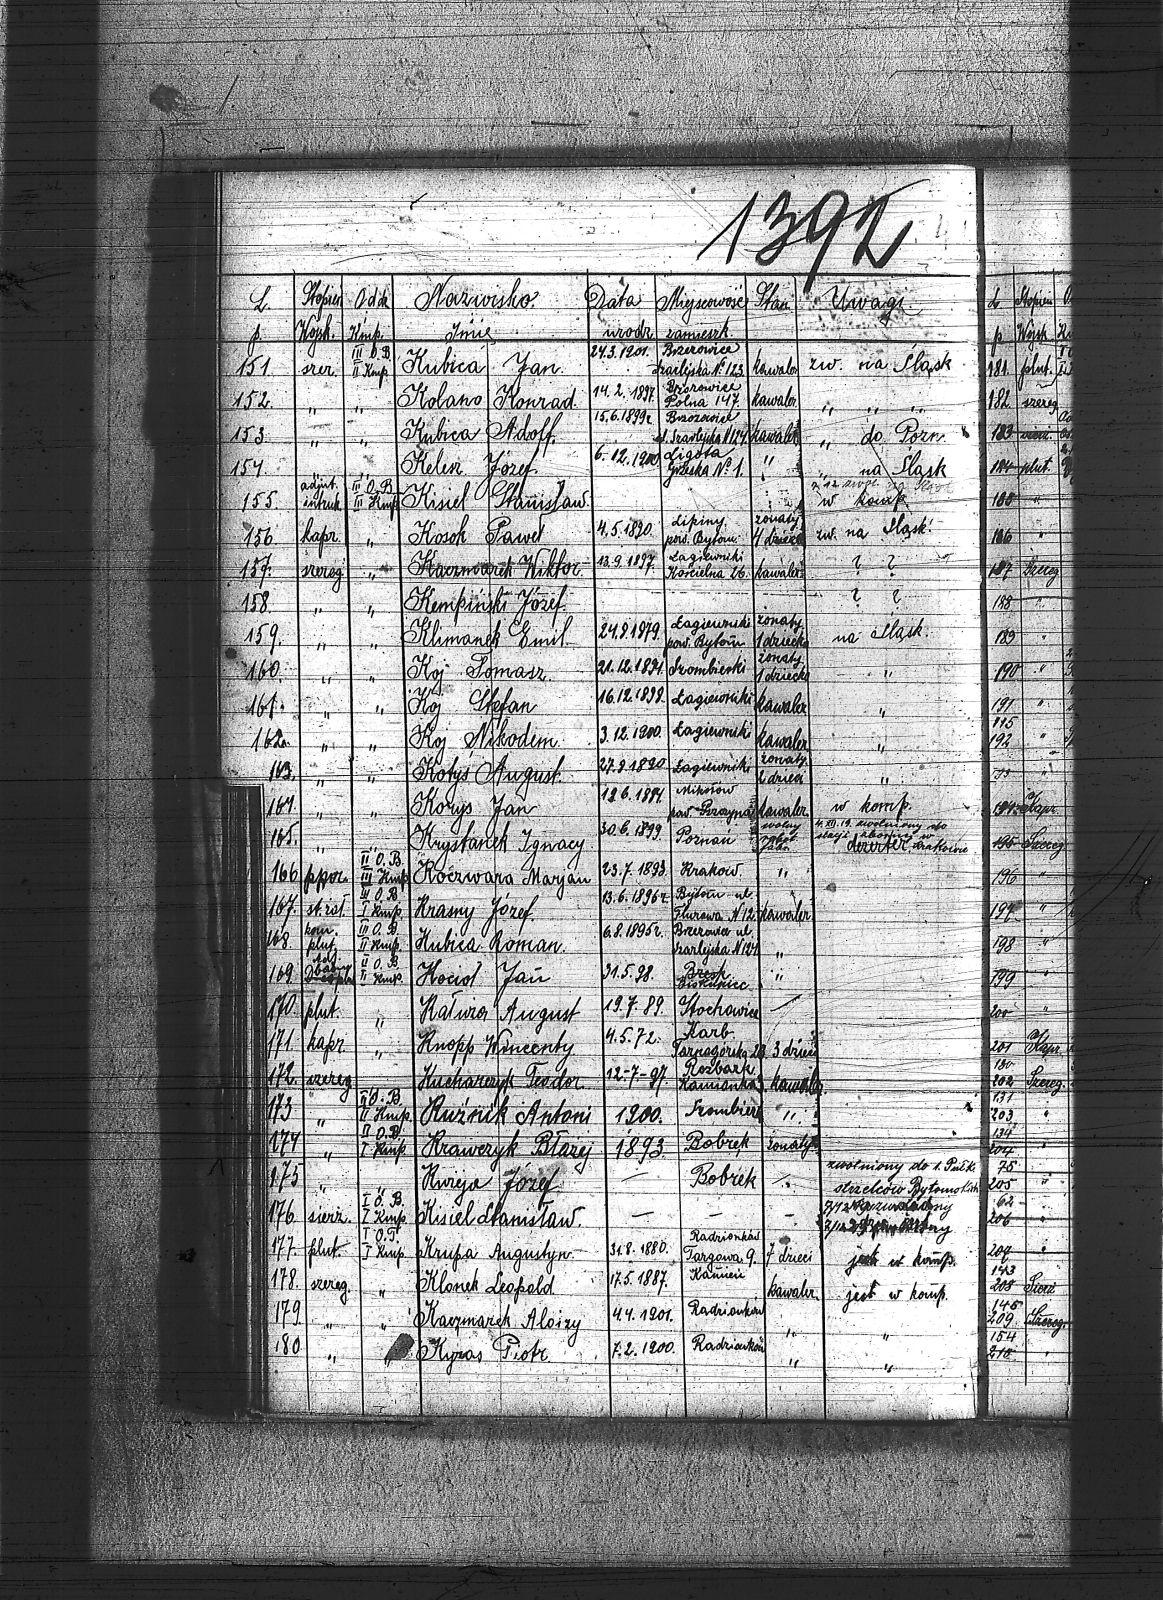 1392
L. Stopień Oddz Nazwisko Data Miejscowość Stan Uwagi
p. Wojsk. Kmp. Imię urodz zamieszk.
151. szer. III O.B. II Kmp. Kubica Jan 24.3.1901. Brzezowice szarlejska № 123 kawaler zw. na Śląsk
152. „ „ Kolano Konrad 14.2.1897. Brzozowice Polna 147. kawaler. „ „ „
153. „ „ Kubica Adolf. 15.6.1899r Brzozowice ul. Szarlejska N 127 kawaler „ do Pozn.
154. Kelesz Józef. 6.12.1900. Ligota № 1. „ „ na Śląsk
155. adjut. instruk III O.B. III Kmp Kisiel Stanisław. w komp.
156 kapr. „ Kosok Paweł 4.5.1890. Lipiny. pow. Bytom żonaty 4 dzieci zw. na Śląsk.
157. szereg „ Kaczmarek Wiktor. 13.9.1897. Łagiewniki Kościelna 26. kawaler ? ?
158. „ „ Kempiński Józef. ? ?
159. „ „ Klimanek Emil. 24.9.1879. Łagiewniki pow. Bytom żonaty. 1 dziecko na Śląsk.
160. „ „ Koj Tomasz. 21.12.1891. Szombierki żonaty. 1 dziecko „
161. „ „ Koj Stefan 16.12.1898. Łagiewniki kawaler „
162. „ „ Koj Nikodem. 3.12.1900. Łagiewniki kawaler „
163. „ „ Kotyś August. 27.8.1890 Łagiewniki żonaty. 2 dzieci „
164. „ „ Korys Jan 12.6.1894 Mikołów pow. Pszczyna kawaler w komp.
165. „ „ Krystanek Ignacy. 30.6.1899. Poznań wolny 4.XII.19. zwolniony do stacji zbornej w Krakowie dezerter
166 ppor. II O.B. III Kmp Koczwara Marjan 23.7.1893. Kraków. „
167. st. żoł. III O.B. I Kmp. Krasny Józef. 13.6.1896r Bytom ul. Flurowa N 12. kawaler
168. kom. plut. III O.B. II Kmp. Kubica Roman. 6.8.1895r. Brzezowice ul. Szarlejska N 127 „
169. II O.B. I Kmp. Kocioł Jan 31.5.98. Biskupice „
170. plut. „ Kałuża August 19.7.89. Stochowice —
171. kapr. „ Knopp Wincenty 4.5.72. Karb Tarnogórska 28. 3 dzieci
172. szereg „ Kucharczyk Teodor 12-7-97. Rozbark Kamionka 3. kawaler
173 „ III O.B. II Kmp. Kuźnik Antoni 1900. Szombierk „
174 „ II O.B. I Kmp. Krawczyk Błażej 1893. Bobrek żonaty
175 „ „ Kwieja Józef — Bobrek zwolniony do 1. Pułk strzelców Bytomskich
176. sierż. I O.B. I Kmp. Kisiel Stanisław. — — —
177. plut. I O.T. I Kmp. Krupa Augustyn 31.8.1880. Radzionków Targowa 9. 7 dzieci jest w komp.
178. szereg. „ Klonek Leopold 17.5.1887. Kamień kawaler jest w komp.
179. „ „ Kaczmarek Aloizy 4.4.1901. Radzionków „ „
180 „ Kyras Piotr. 7.2.1900. Radzionków „ „
L Stopień
p Wojsk
181. plut.
182. szereg
183
184 plut.
185 „
186
187 Szereg
188 „
189 „
190 „
191 „
115
192 „
194 Kapr.
195 Szereg
196 „
197 „
198 „
199 „
200 „
201 Kapr
130
202 Szereg.
131
203 „
134
204 „
75
205 „
62
206 „
207 „
143
208 Sierż
145
209 Szereg.
154
210 „